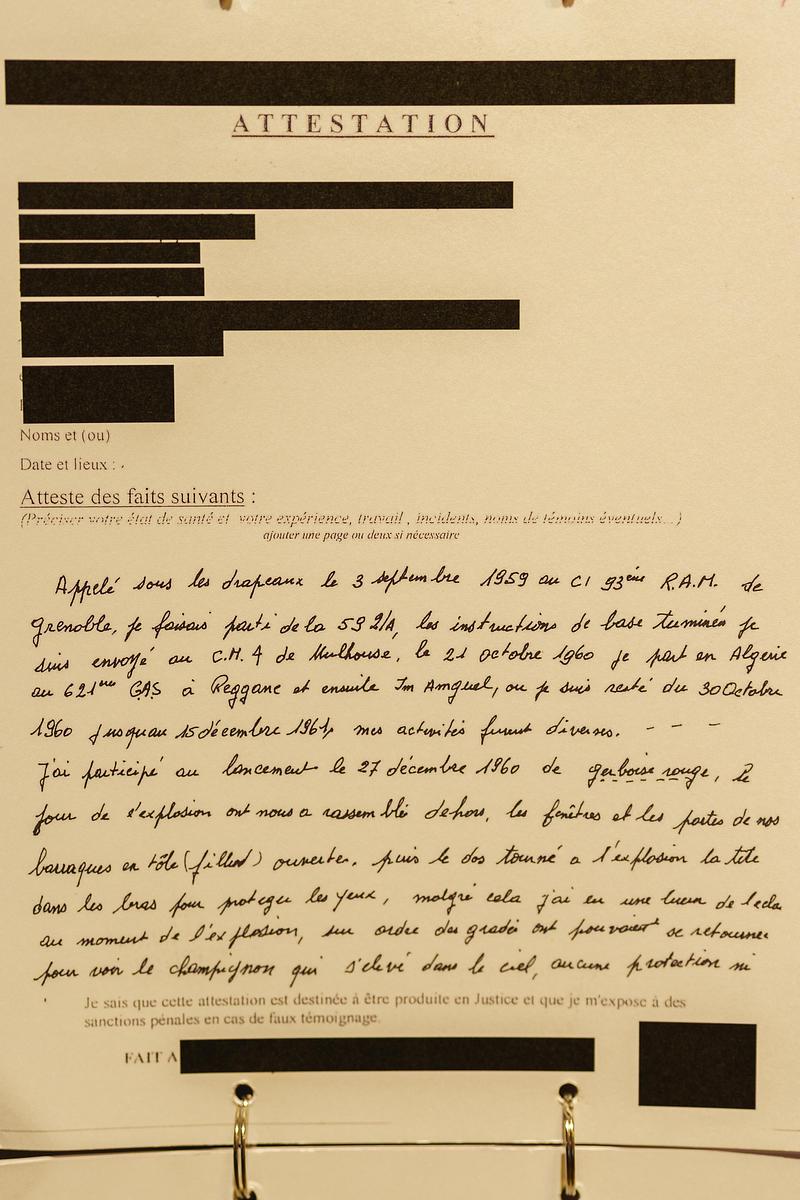 ATTESTATION
Noms et (ou)
Date et lieux :
Atteste des faits suivants :
(Préciser votre état de santé et votre expérience, travail, incidents, noms de témoins éventuels...)
ajouter une page ou deux si nécessaire
Appelé sous les drapeaux le 3 septembre 1959 au CI 93ème R.A.M. de
Grenoble, je faisais parti de la 59 2/A, les instructions de base terminés je
suis envoyé au C.M. 4 de Mulhouse, le 21 octobre 1960 je part en Algerie
au 621ème GAS à Reggane et ensuite Im Amguel, ou je suis resté du 30 Octobre
1960 jusquau 15 décembre 1961, mes activités furent diverses. - - -
J'ai participé au lancement le 27 décembre 1960 de gerboise rouge, le
jour de l'explosion ont nous a rassemblé dehors, les fenêtres et les portes de nos
barraques en tôle (fillod) ouvertes, puis le dos tourné a l'explosion la tête
dans les bras pour proteger les yeux, malgré cela j'ai eu une lueur de
au moment de l'explosion, sur ordre des gradés ont pouvait se retourner
pour voir le champignon qui s'elevé dans le ciel, aucune protection ni
Je sais que cette attestation est destinée à être produite en Justice et que je m'expose à des
sanctions pénales en cas de faux témoignage.
FAIT A